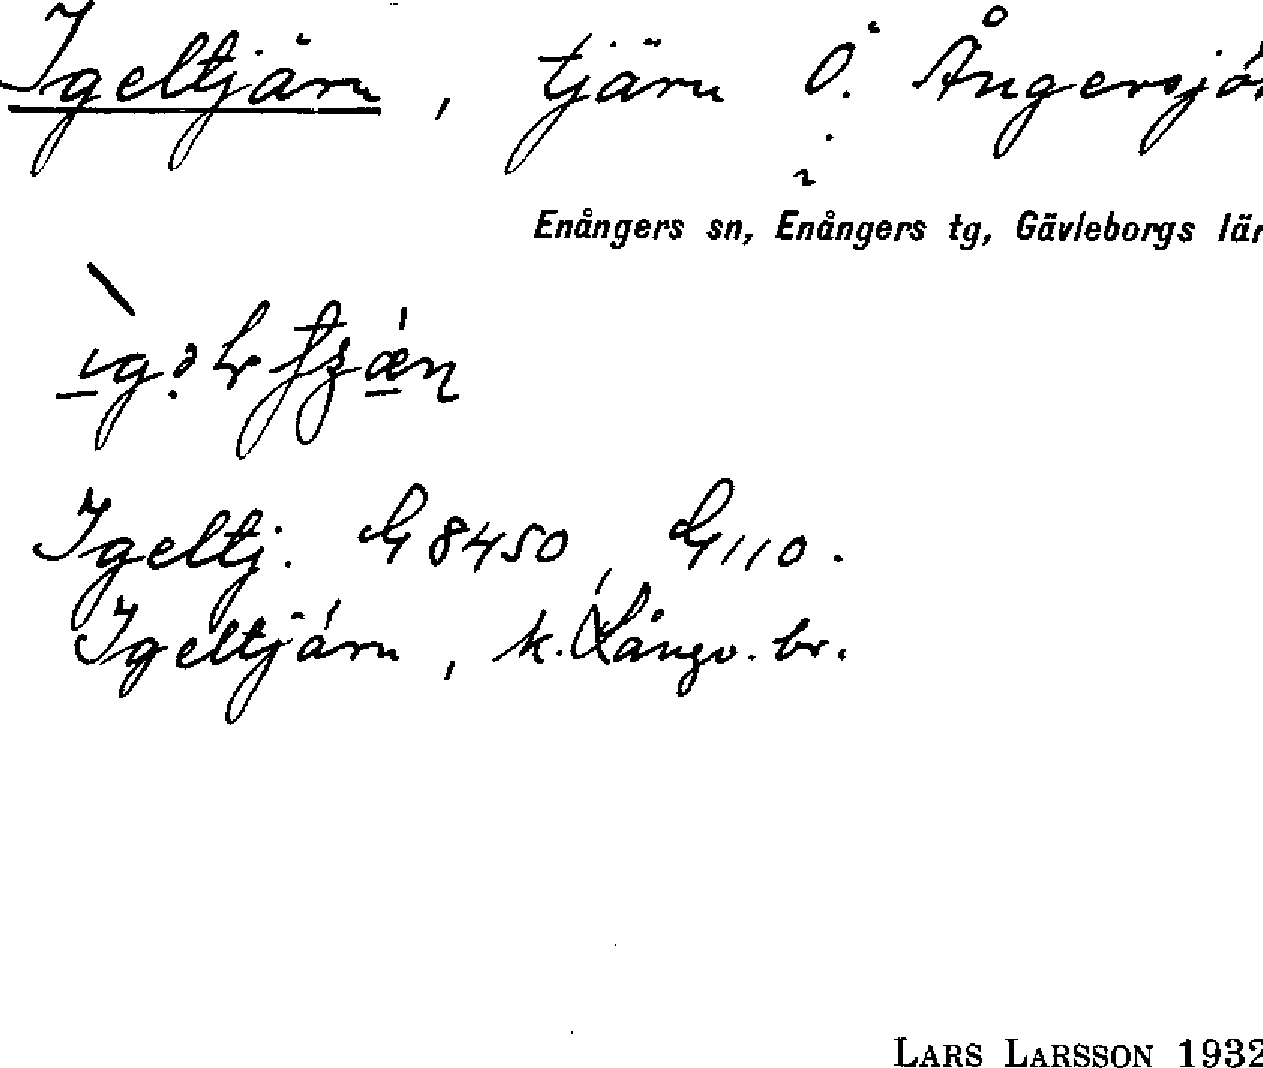 Igeltjärn, tjärn Ö. Ångersjön
i
Enångers sn, Enångers tg, Gävleborgs län
Igeltj. G 8450, G 110.
Igeltjärn, k. Långv. br.
LARS LARSSON 1932